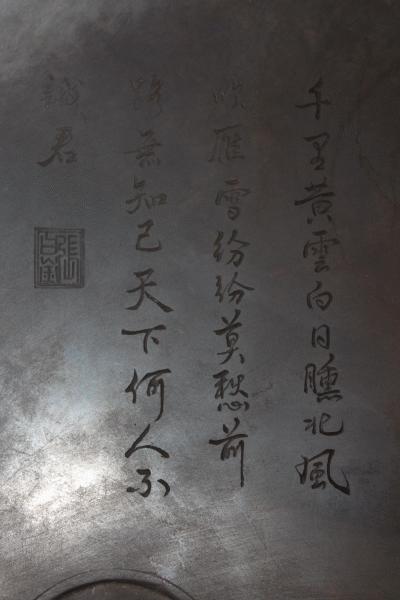 千里黃雲白日曛北風
吹雁雪紛紛莫愁前
路無知己天下何人不
識君